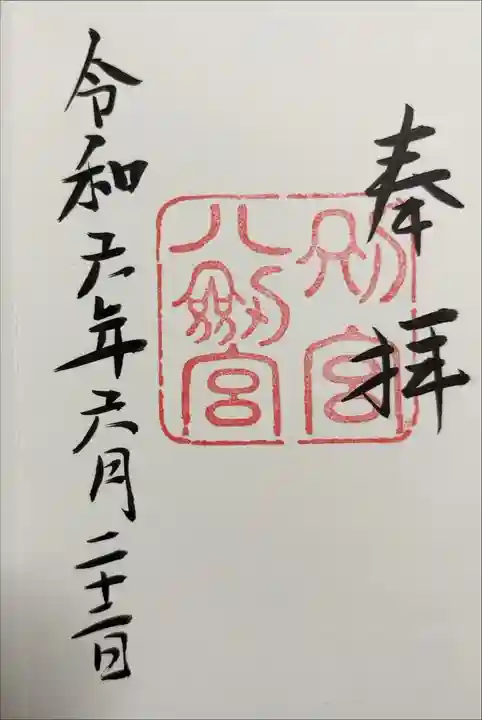 奉拝
別宮
八劔宮
令和六年六月二十二日